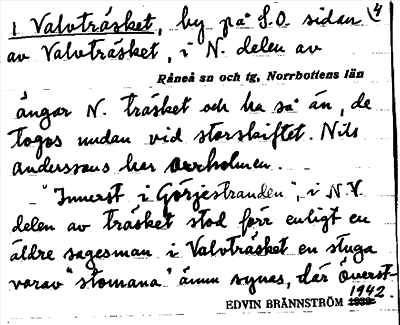 1 Valvträsket, by på S.O sidan 4
av Valvträsket, i N. delen av
Råneå sn och tg, Norrbottens län
ängar N. träsket och ha så än, de
togos undan vid storskiftet. Nils
Anderssons har orrholmen.
"Innerst i Görjestranden", i N.V.
delen av träsket stod förr enligt en
äldre sagesman i Valvträsket en stuga
varav "stomana" ännu synas, där överst-
1942.
EDVIN BRÄNNSTRÖM